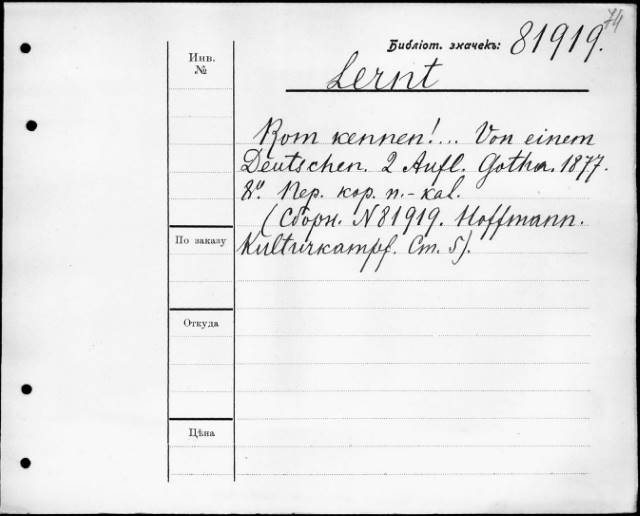 74
Библіот. значекъ: 81919.
Инв.
№
Lernt
Rom kennen!... Von einem
Deutschen. 2 Aufl. Gotha. 1877.
8º. Пер. кор. п.-кал.
(Сборн. N 81919. Hoffmann.
Kulturkampf. Ст. 5).
По заказу
Откуда
Цѣна